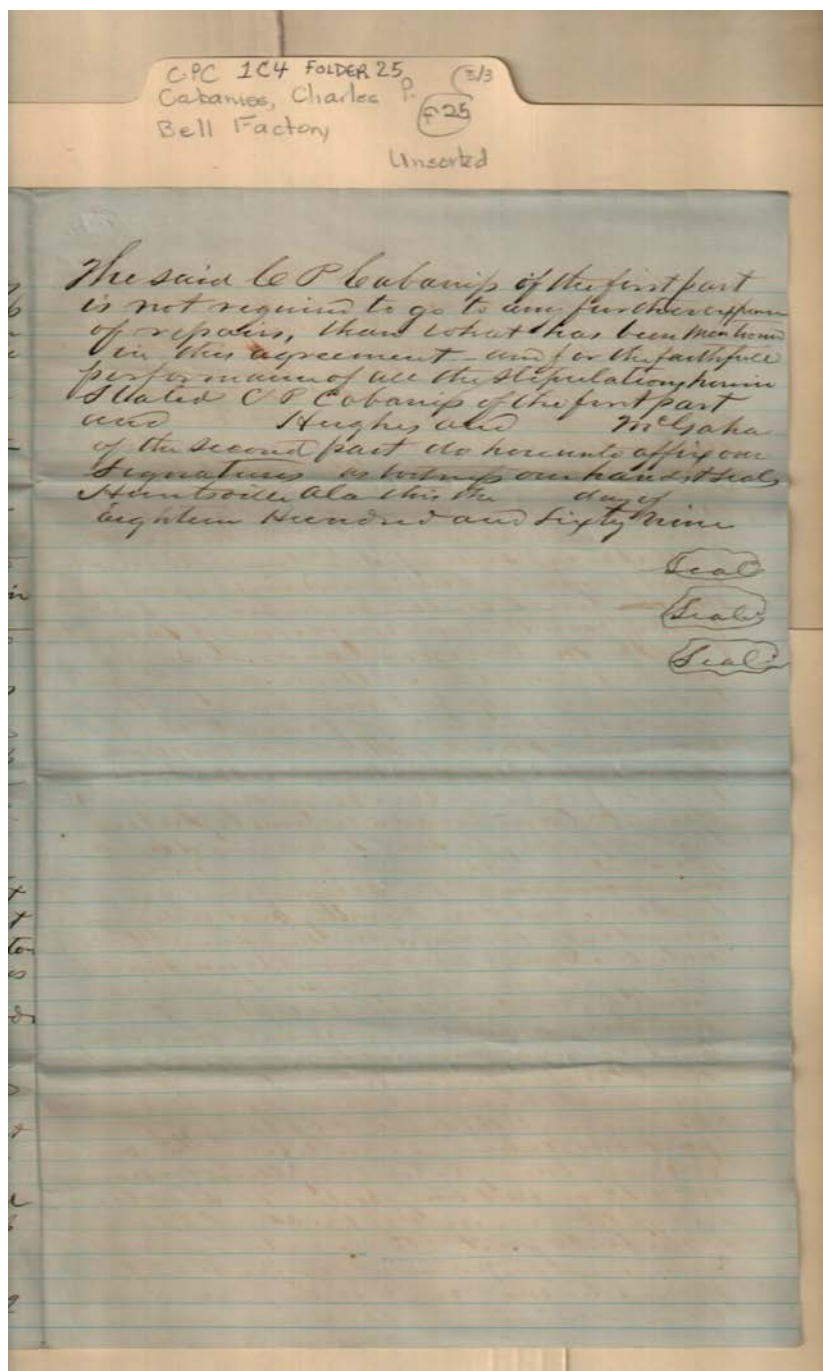 CPC 1C4 FOLDER 25 3/3
Cabaniss, Charles P. F25
Bell Factory
Unsorted
The said C P Cabaniss of the first part
is not required to go to any further expense
of repairs, than what has been mentioned
in this agreement - and for the faithfull
performance of all the stipulations herein
Stated C P Cabaniss of the first part
and Hughes and McGaha
of the second part do hereunto affix our
Signatures as witness our hands & Seals
Huntsville Ala this the day of
Eighteen Hundred and Sixty Nine
Seal
Seal
Seal